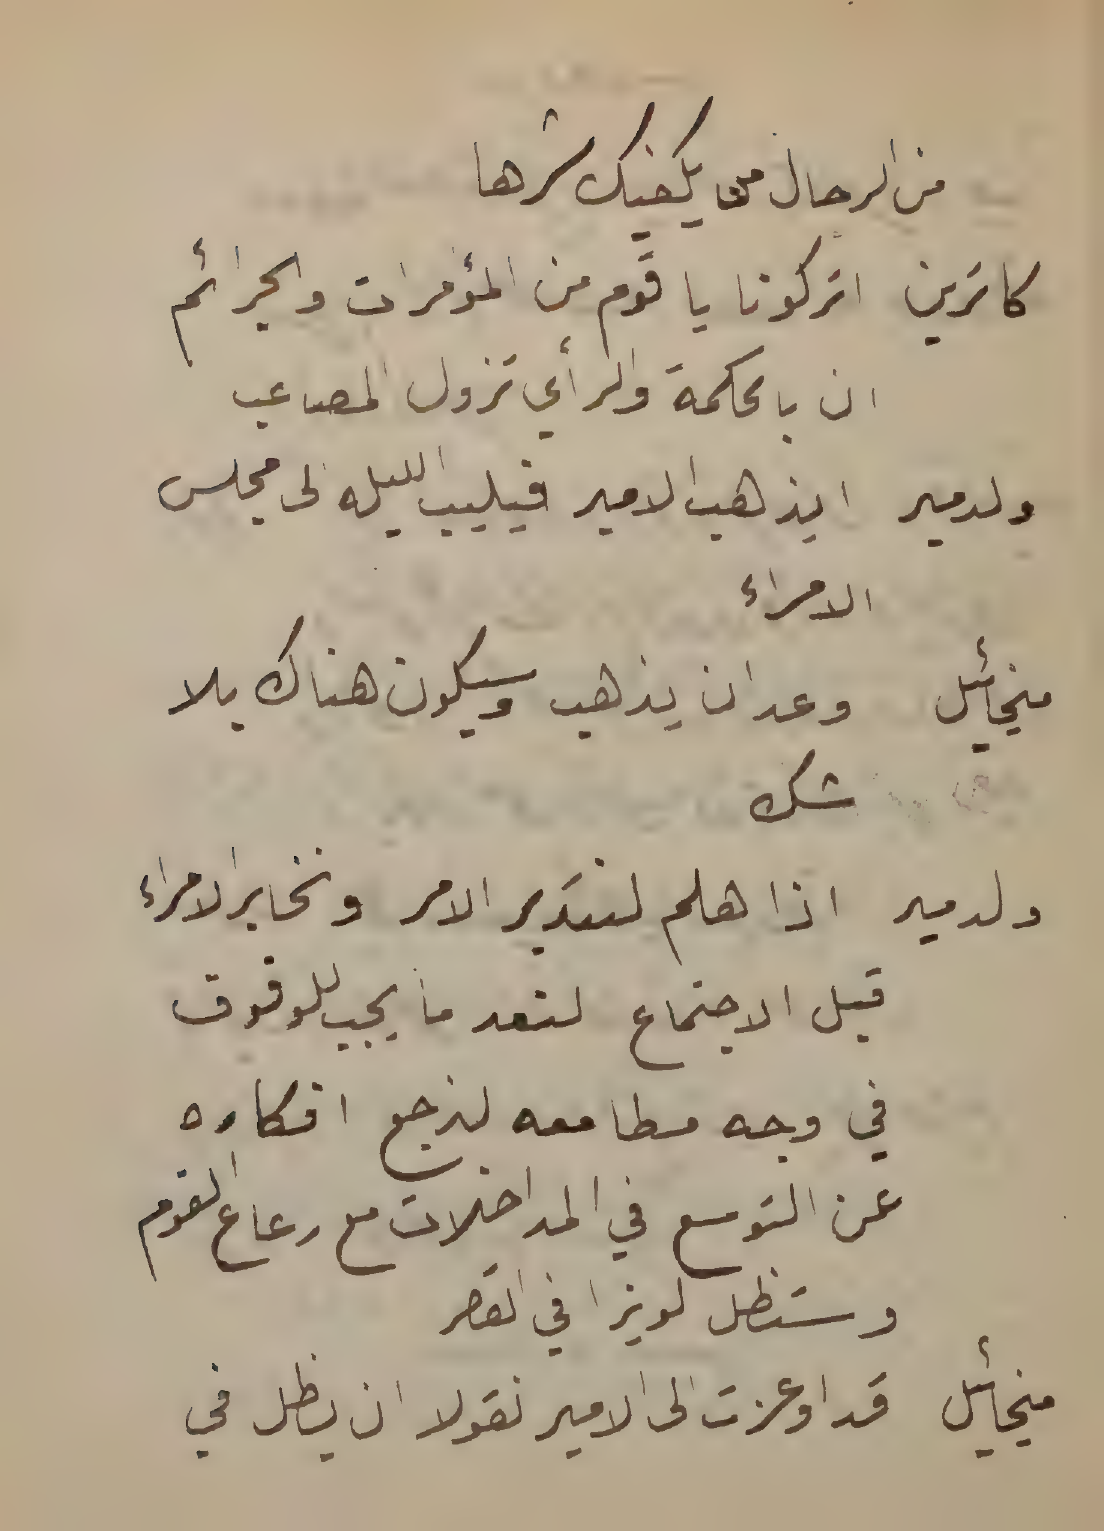 من الرجال من يكفيك شرها
كاترين اتركونا يا قوم من المؤمرات والجرائم
ان بالحكمة والرأي تزول المصاعب
ولدمير ايذهب الامير فيليب الليله الى مجلس
الامراء
ميخائيل وعد ان يذهب وسيكون هناك بلا
شك
ولدمير اذا هلم لنتدبر الامر ونخابر الامراء
قبل الاجتماع لنعد ما يجب للوقوف
في وجه مطامعه لنرجع افكاره
عن التوسع في المداخلات مع رعاع القوم
وستظل لويزا في القصر
ميخائيل قد اوعزت الى الامير نقولا ان يظل في